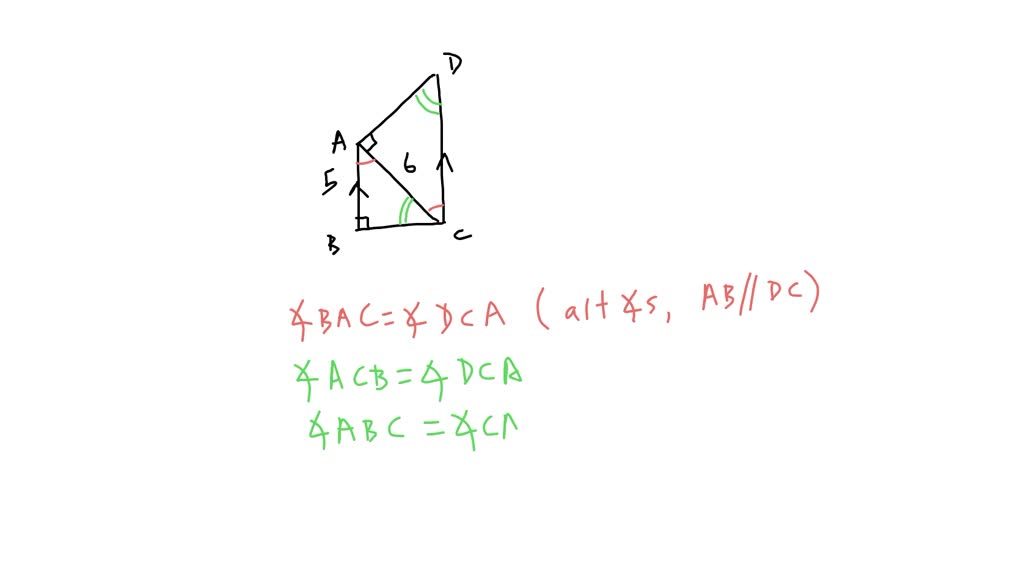 D
A
6
5
B
C
∡BAC=∡DCA (alt ∡s, AB//DC)
∡ACB=∡DCA
∡ABC=∡CA